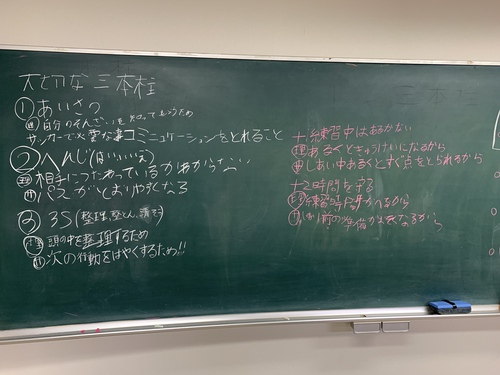 大切な三本柱
①あいさつ
理自分のそんざいを知ってもらうため
サッカーで必要な事コミニュケーションをとれること
②へんじ(はい、いいえ)
理相手につたわっているかわからない
サパスがとおりやすくなる
③3S(整理、整とん、清そう)
理頭の中を整理するため
サ次の行動をはやくするため!!
+練習中はあるかない
理あるくときゅうけいになるから
サしあい中あるくとすぐ点をとられるから
+2時間を守る
理練習時間がへるから
サしあい前の準備が